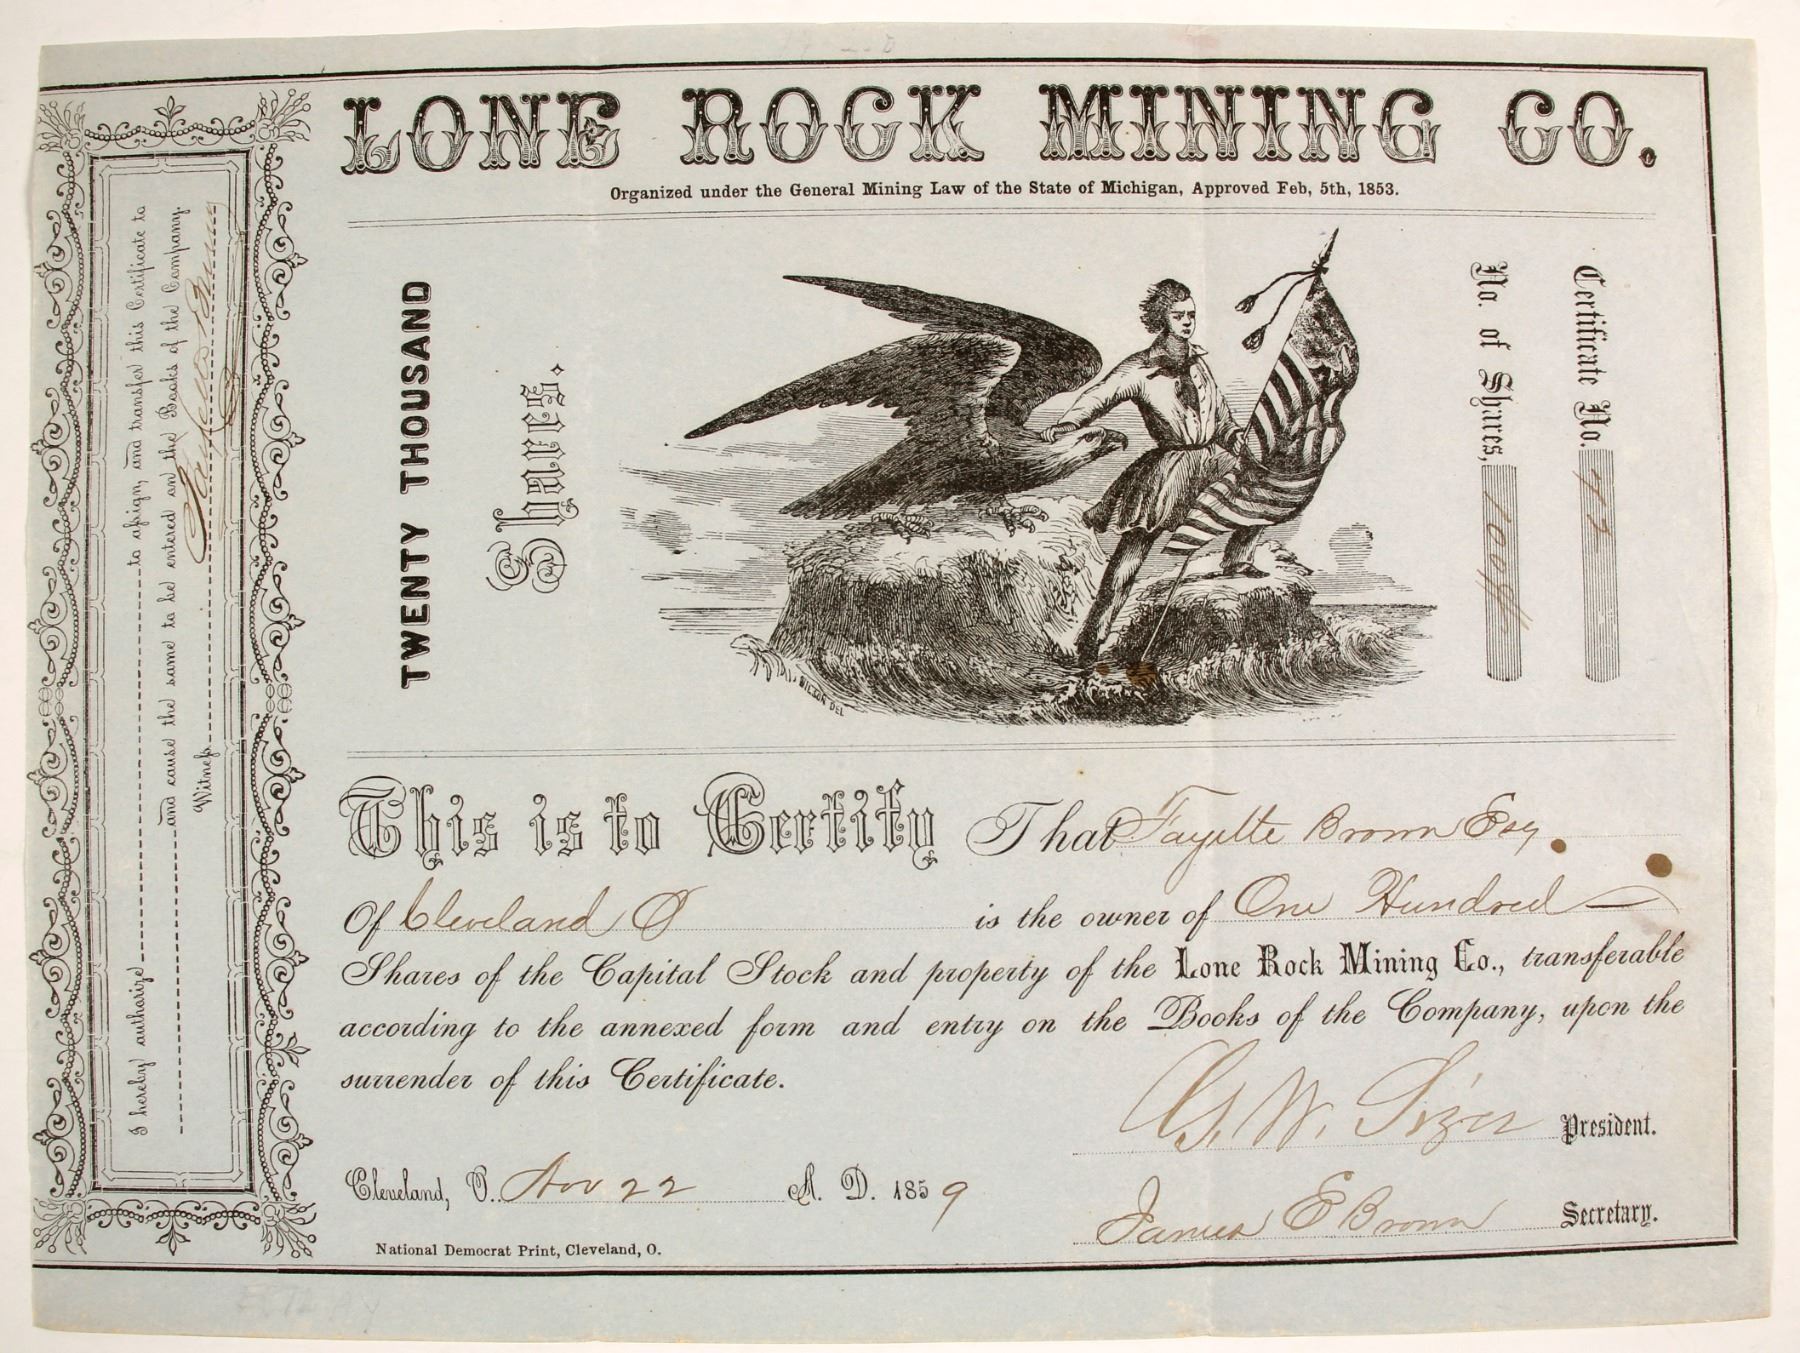 LONE ROCK MINING CO.
Organized under the General Mining Law of the State of Michigan, Approved Feb, 5th, 1853.
TWENTY THOUSAND
Shares.
Certificate No. 42
No. of Shares, 100
DEL
This is to Certify That Fayette Brown Esq.
Of Cleveland O is the owner of One Hundred
Shares of the Capital Stock and property of the Lone Rock Mining Co., transferable
according to the annexed form and entry on the Books of the Company, upon the
surrender of this Certificate.
G. W. Sizer President.
Cleveland, O. Nov 22 A. D. 1859
James E Brown Secretary.
National Democrat Print, Cleveland, O.
I hereby authorize to assign, and transfer this Certificate to
and cause the same to be entered on the Books of the Company.
Witness Fayette Brown